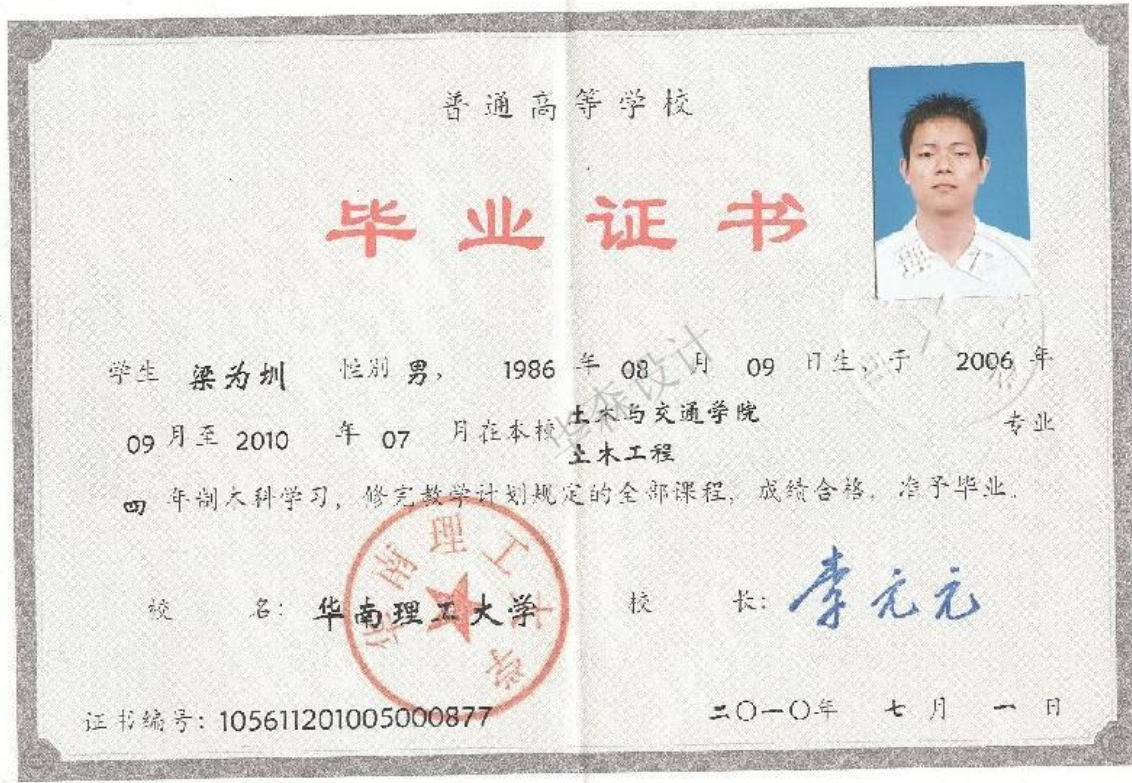 普通高等学校
毕业证书
学生 梁为圳 性别 男, 1986 年 08 月 09 日生,于 2006 年
09 月至 2010 年 07 月在本校 土木与交通学院 土木工程 专业
四 年制本科学习,修完教学计划规定的全部课程,成绩合格,准予毕业。
校 名: 华南理工大学 校 长: 李元元
华南理工大学
证书编号: 105611201005000877 二〇一〇年 七 月 一 日
华森设计